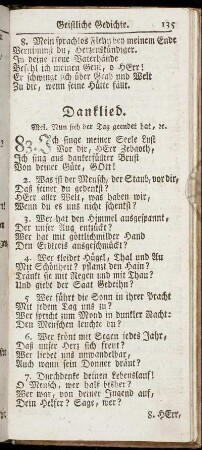 Geistliche Gedichte. 135
8. Mein sprachlos Flehn bey meinem Ende
Vernimmst du, Herzenskündiger.
In deine treue Vaterhände
Befehl ich meinen Geist, o HErr!
Er schwingt sich über Grab und Welt
Zu dir, wenn seine Hütte fällt.
Danklied.
Mel. Nun sich der Tag geendet hat, ꝛc.
83. Ich singe meiner Seele Lust
Vor dir, HErr Zebaoth,
Ich sing aus dankerfüllter Brust
Von deiner Güte, GOtt!
2. Was ist der Mensch, der Staub, vor dir,
Daß seiner du gedenkst?
HErr aller Welt, was haben wir,
Wenn du es uns nicht schenkst?
3. Wer hat den Himmel ausgespannt,
Der unser Aug entzückt?
Wer hat mit göttlichmilder Hand
Den Erdkreis ausgeschmückt?
4. Wer kleidet Hügel, Thal und Au
Mit Schönheit? pflanzt den Hain?
Tränkt sie mit Regen und mit Thau?
Und giebt der Saat Gedeihn?
5. Wer führt die Sonn in ihrer Pracht
Mit jedem Tag uns zu?
Wer spricht zum Mond in dunkler Nacht:
Den Menschen leuchte du?
6. Wer krönt mit Segen jedes Jahr,
Daß unser Herz sich freut?
Wer liebet uns unwandelbar,
Auch wann sein Donner dräut?
7. Durchdenke deinen Lebenslauf!
O Mensch, wer half bisher?
Wer war, von deiner Jugend auf,
Dein Helfer? Sage, wer?
8. HErr,